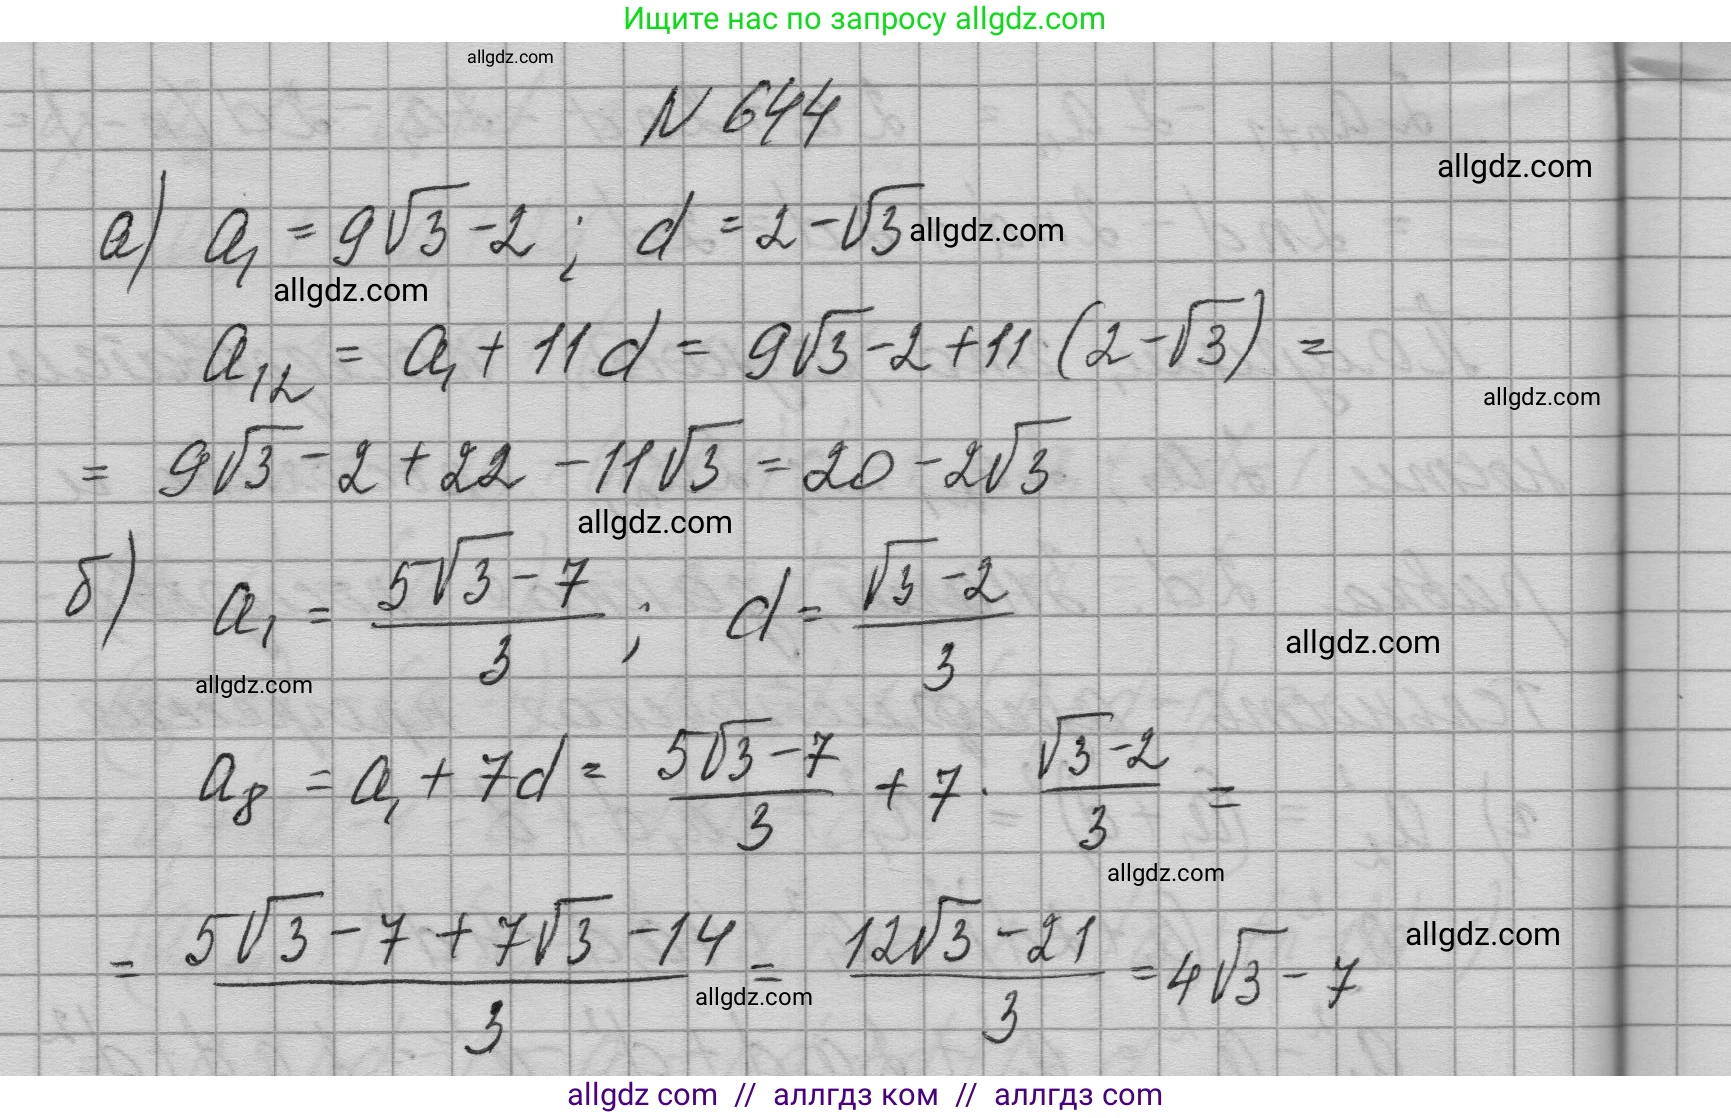 Ищите нас по запросу allgdz.com
allgdz.com
N 644
allgdz.com
а) a₁ = 9√3 - 2 ; d = 2 - √3 allgdz.com
allgdz.com
a₁₂ = a₁ + 11d = 9√3 - 2 + 11 · (2 - √3) =
allgdz.com
= 9√3 - 2 + 22 - 11√3 = 20 - 2√3
allgdz.com
б) a₁ = (5√3 - 7)/3 ; d = (√3 - 2)/3
allgdz.com
allgdz.com
a₈ = a₁ + 7d = (5√3 - 7)/3 + 7 · (√3 - 2)/3 =
allgdz.com
= (5√3 - 7 + 7√3 - 14)/3 = (12√3 - 21)/3 = 4√3 - 7
allgdz.com
allgdz.com
allgdz.com // аллгдз ком // аллгдз com